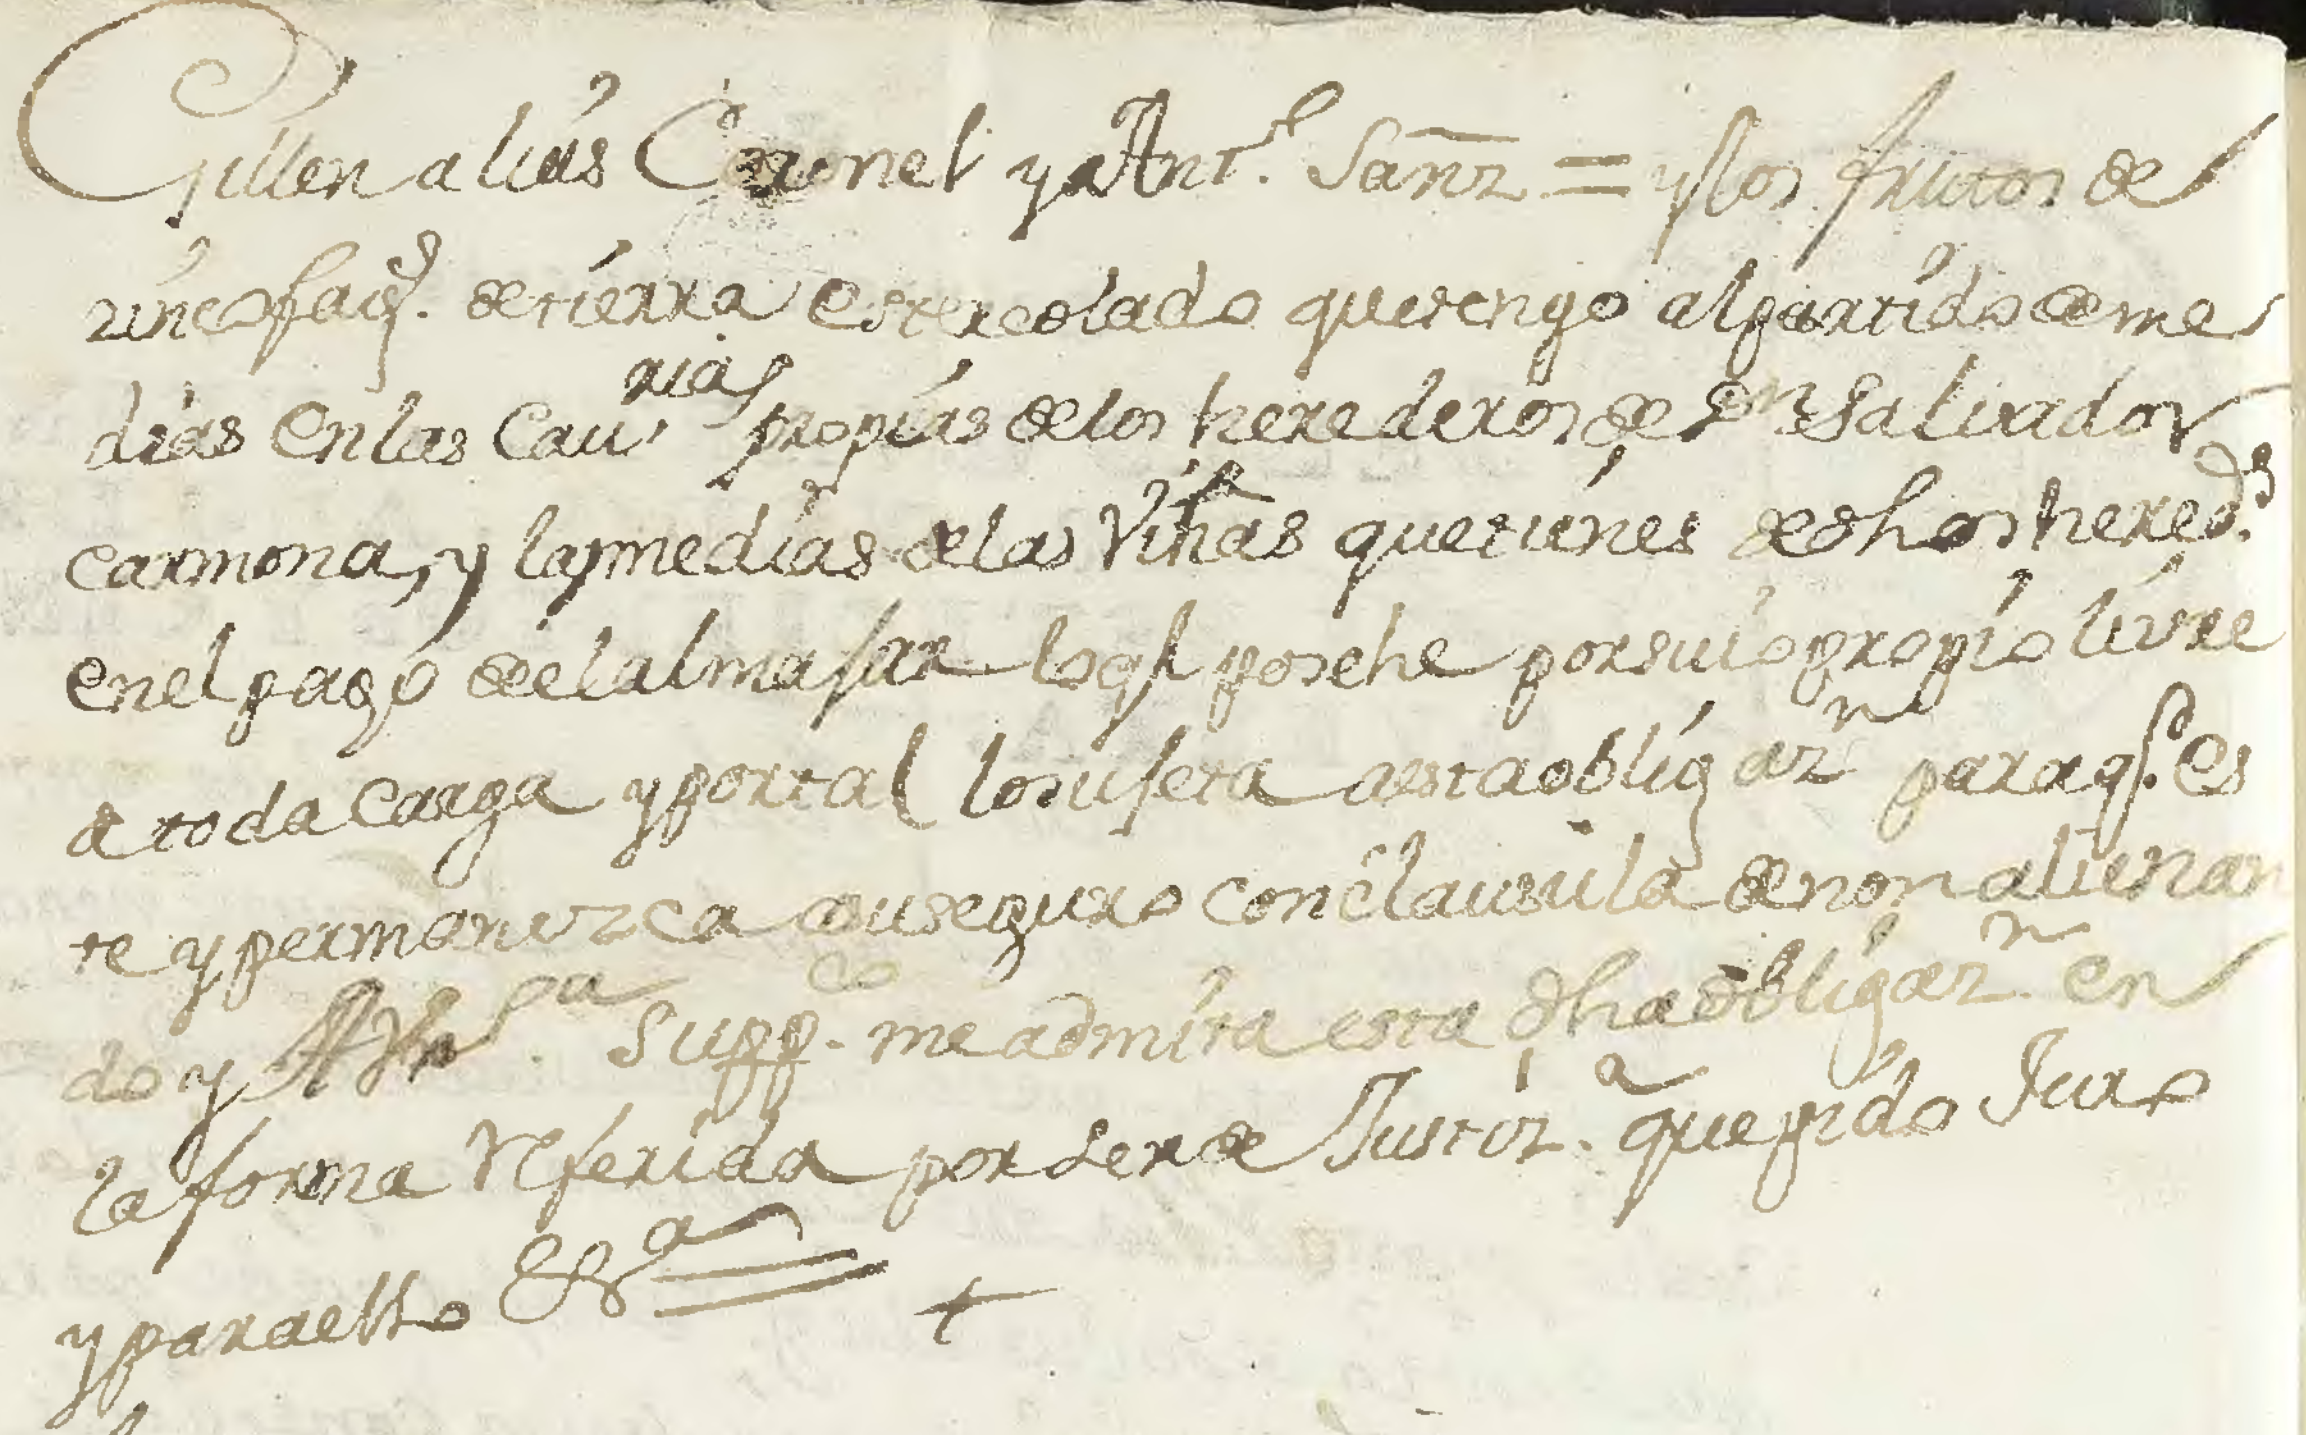 Guillen alias Coronel y a Antt.º Sanz = y los frutos de
zinco faq.s de tierra estercolado que tengo al partido de me
dias en las Cau.rias propias de los herederos de Dn Salvador
carmona, y las medias de las Viñas que tienes de dhos hered.s
en el pago de el almajar lo ql posehe por suio propio livre
a toda carga y por tal lo sujeta a esta obligazn para q.e es
te y permanezca a su seguro con clausula de non alienan
do y A Vm Supp.co me admita esta dha obligazn en
la forma referida por ser de Justiz.a que pido Juro
y para ello &a